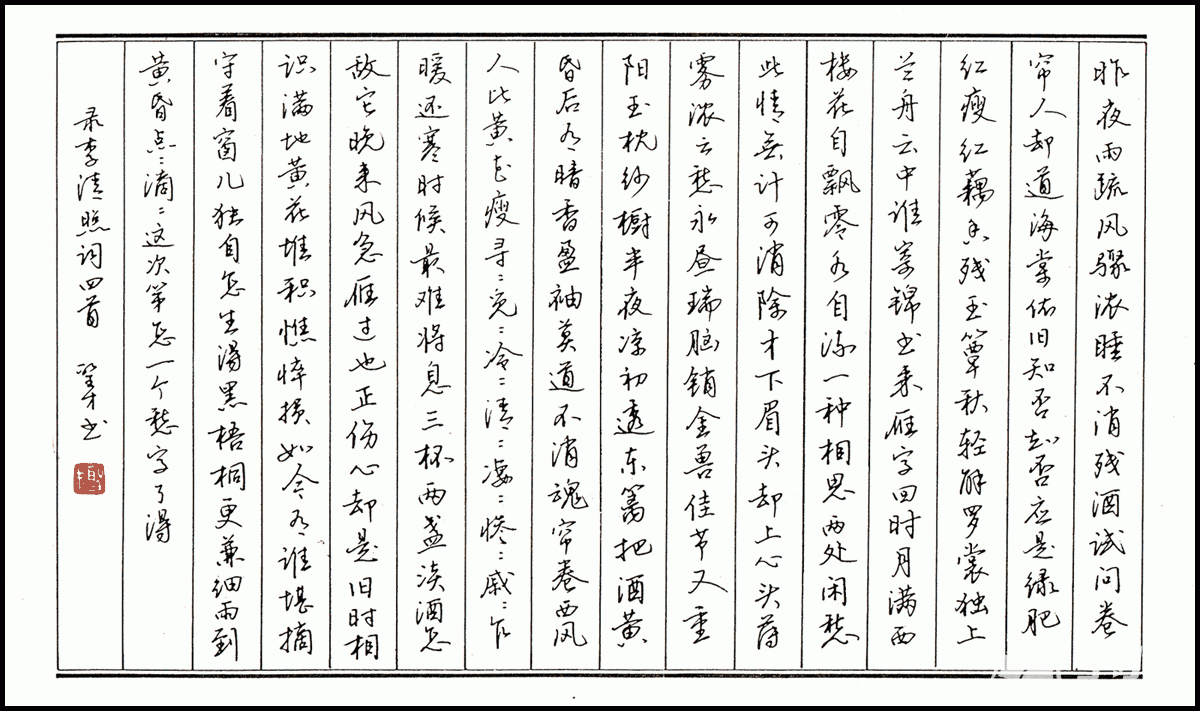 昨夜雨疏风骤浓睡不消残酒试问卷
帘人却道海棠依旧知否知否应是绿肥
红瘦红藕香残玉簟秋轻解罗裳独上
兰舟云中谁寄锦书来雁字回时月满西
楼花自飘零水自流一种相思两处闲愁
此情无计可消除才下眉头却上心头薄
雾浓云愁永昼瑞脑销金兽佳节又重
阳玉枕纱橱半夜凉初透东篱把酒黄
昏后有暗香盈袖莫道不消魂帘卷西风
人比黄花瘦寻:觅:冷:清:凄:惨:戚:乍
暖还寒时候最难将息三杯两盏淡酒怎
敌它晚来风急雁过也正伤心却是旧时相
识满地黄花堆积憔悴损如今有谁堪摘
守着窗儿独自怎生得黑梧桐更兼细雨到
黄昏点:滴:这次第怎一个愁字了得
录李清照词四首 书